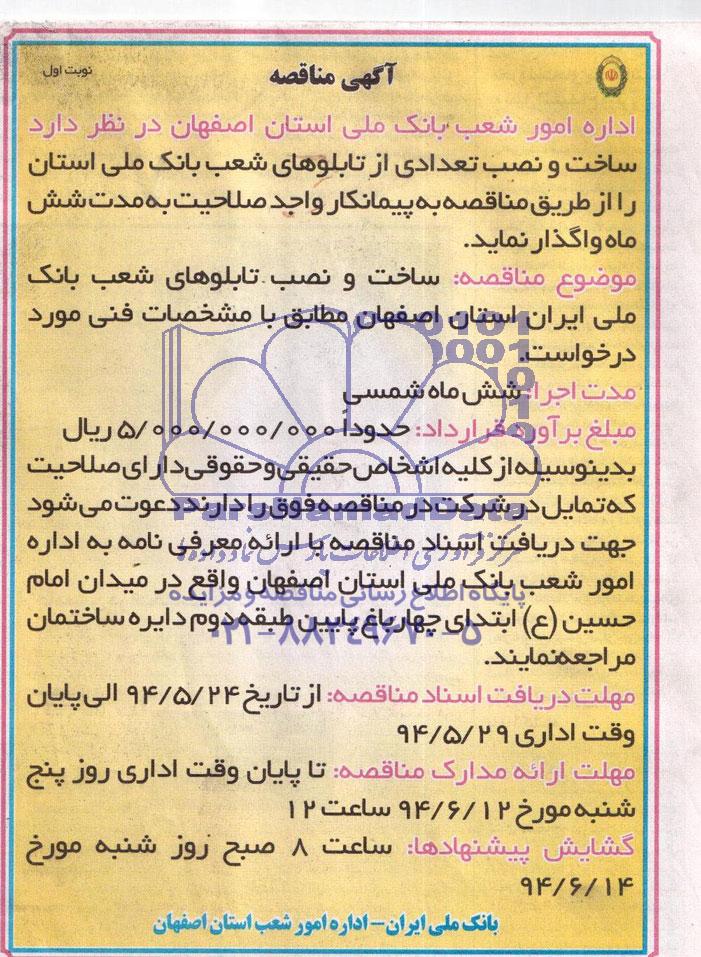 آگهی مناقصه
نوبت اول
اداره امور شعب بانک ملی استان اصفهان در نظر دارد
ساخت و نصب تعدادی از تابلوهای شعب بانک ملی استان
را از طریق مناقصه به پیمانکار واجد صلاحیت به مدت شش
ماه واگذار نماید.
موضوع مناقصه: ساخت و نصب تابلوهای شعب بانک
ملی ایران استان اصفهان مطابق با مشخصات فنی مورد
درخواست.
مدت اجرا: شش ماه شمسی
مبلغ برآورد قرارداد: حدوداً ۵/۰۰۰/۰۰۰/۰۰۰ ریال
بدینوسیله از کلیه اشخاص حقیقی و حقوقی دارای صلاحیت
که تمایل در شرکت در مناقصه فوق را دارند دعوت می شود
جهت دریافت اسناد مناقصه با ارائه معرفی نامه به اداره
امور شعب بانک ملی استان اصفهان واقع در میدان امام
حسین (ع) ابتدای چهارباغ پایین طبقه دوم دایره ساختمان
مراجعه نمایند.
مهلت دریافت اسناد مناقصه: از تاریخ ۹۴/۵/۲۴ الی پایان
وقت اداری ۹۴/۵/۲۹
مهلت ارائه مدارک مناقصه: تا پایان وقت اداری روز پنج
شنبه مورخ ۹۴/۶/۱۲ ساعت ۱۲
گشایش پیشنهادها: ساعت ۸ صبح روز شنبه مورخ
۹۴/۶/۱۴
بانک ملی ایران - اداره امور شعب استان اصفهان
ParsNamadData
پایگاه اطلاع رسانی مناقصه و مزایده
۰۲۱-۸۸۳۴۹۶۷۰-۵